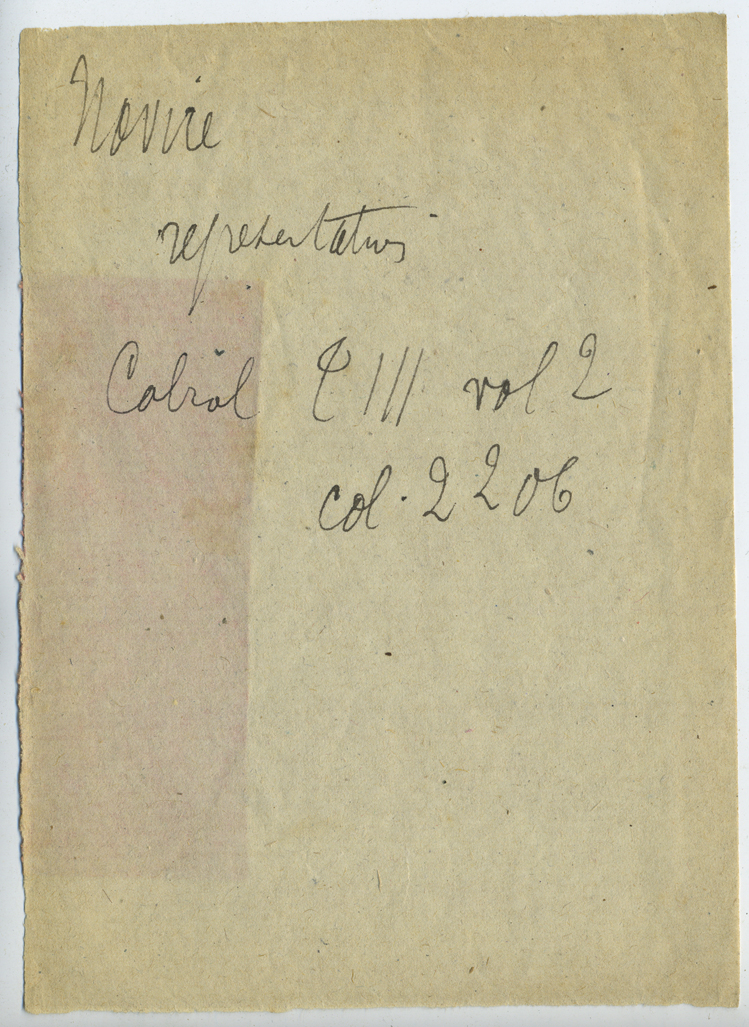 Navire
representations
Cabrol T III vol 2
col. 2206